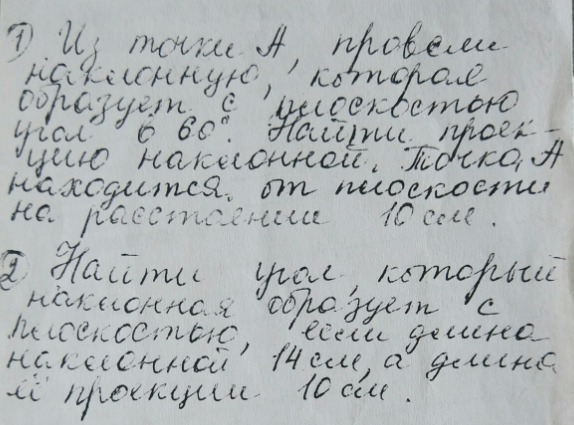 1) Из точки А, провели
наклонную, которая
образует с плоскостью
угол в 60°. Найти проек-
цию наклонной. Точка А
находится от плоскости
на расстоянии 10 см.
2) Найти угол, который
наклонная образует с
плоскостью, если длина
наклонной 14 см, а длина
её проекции 10 см.